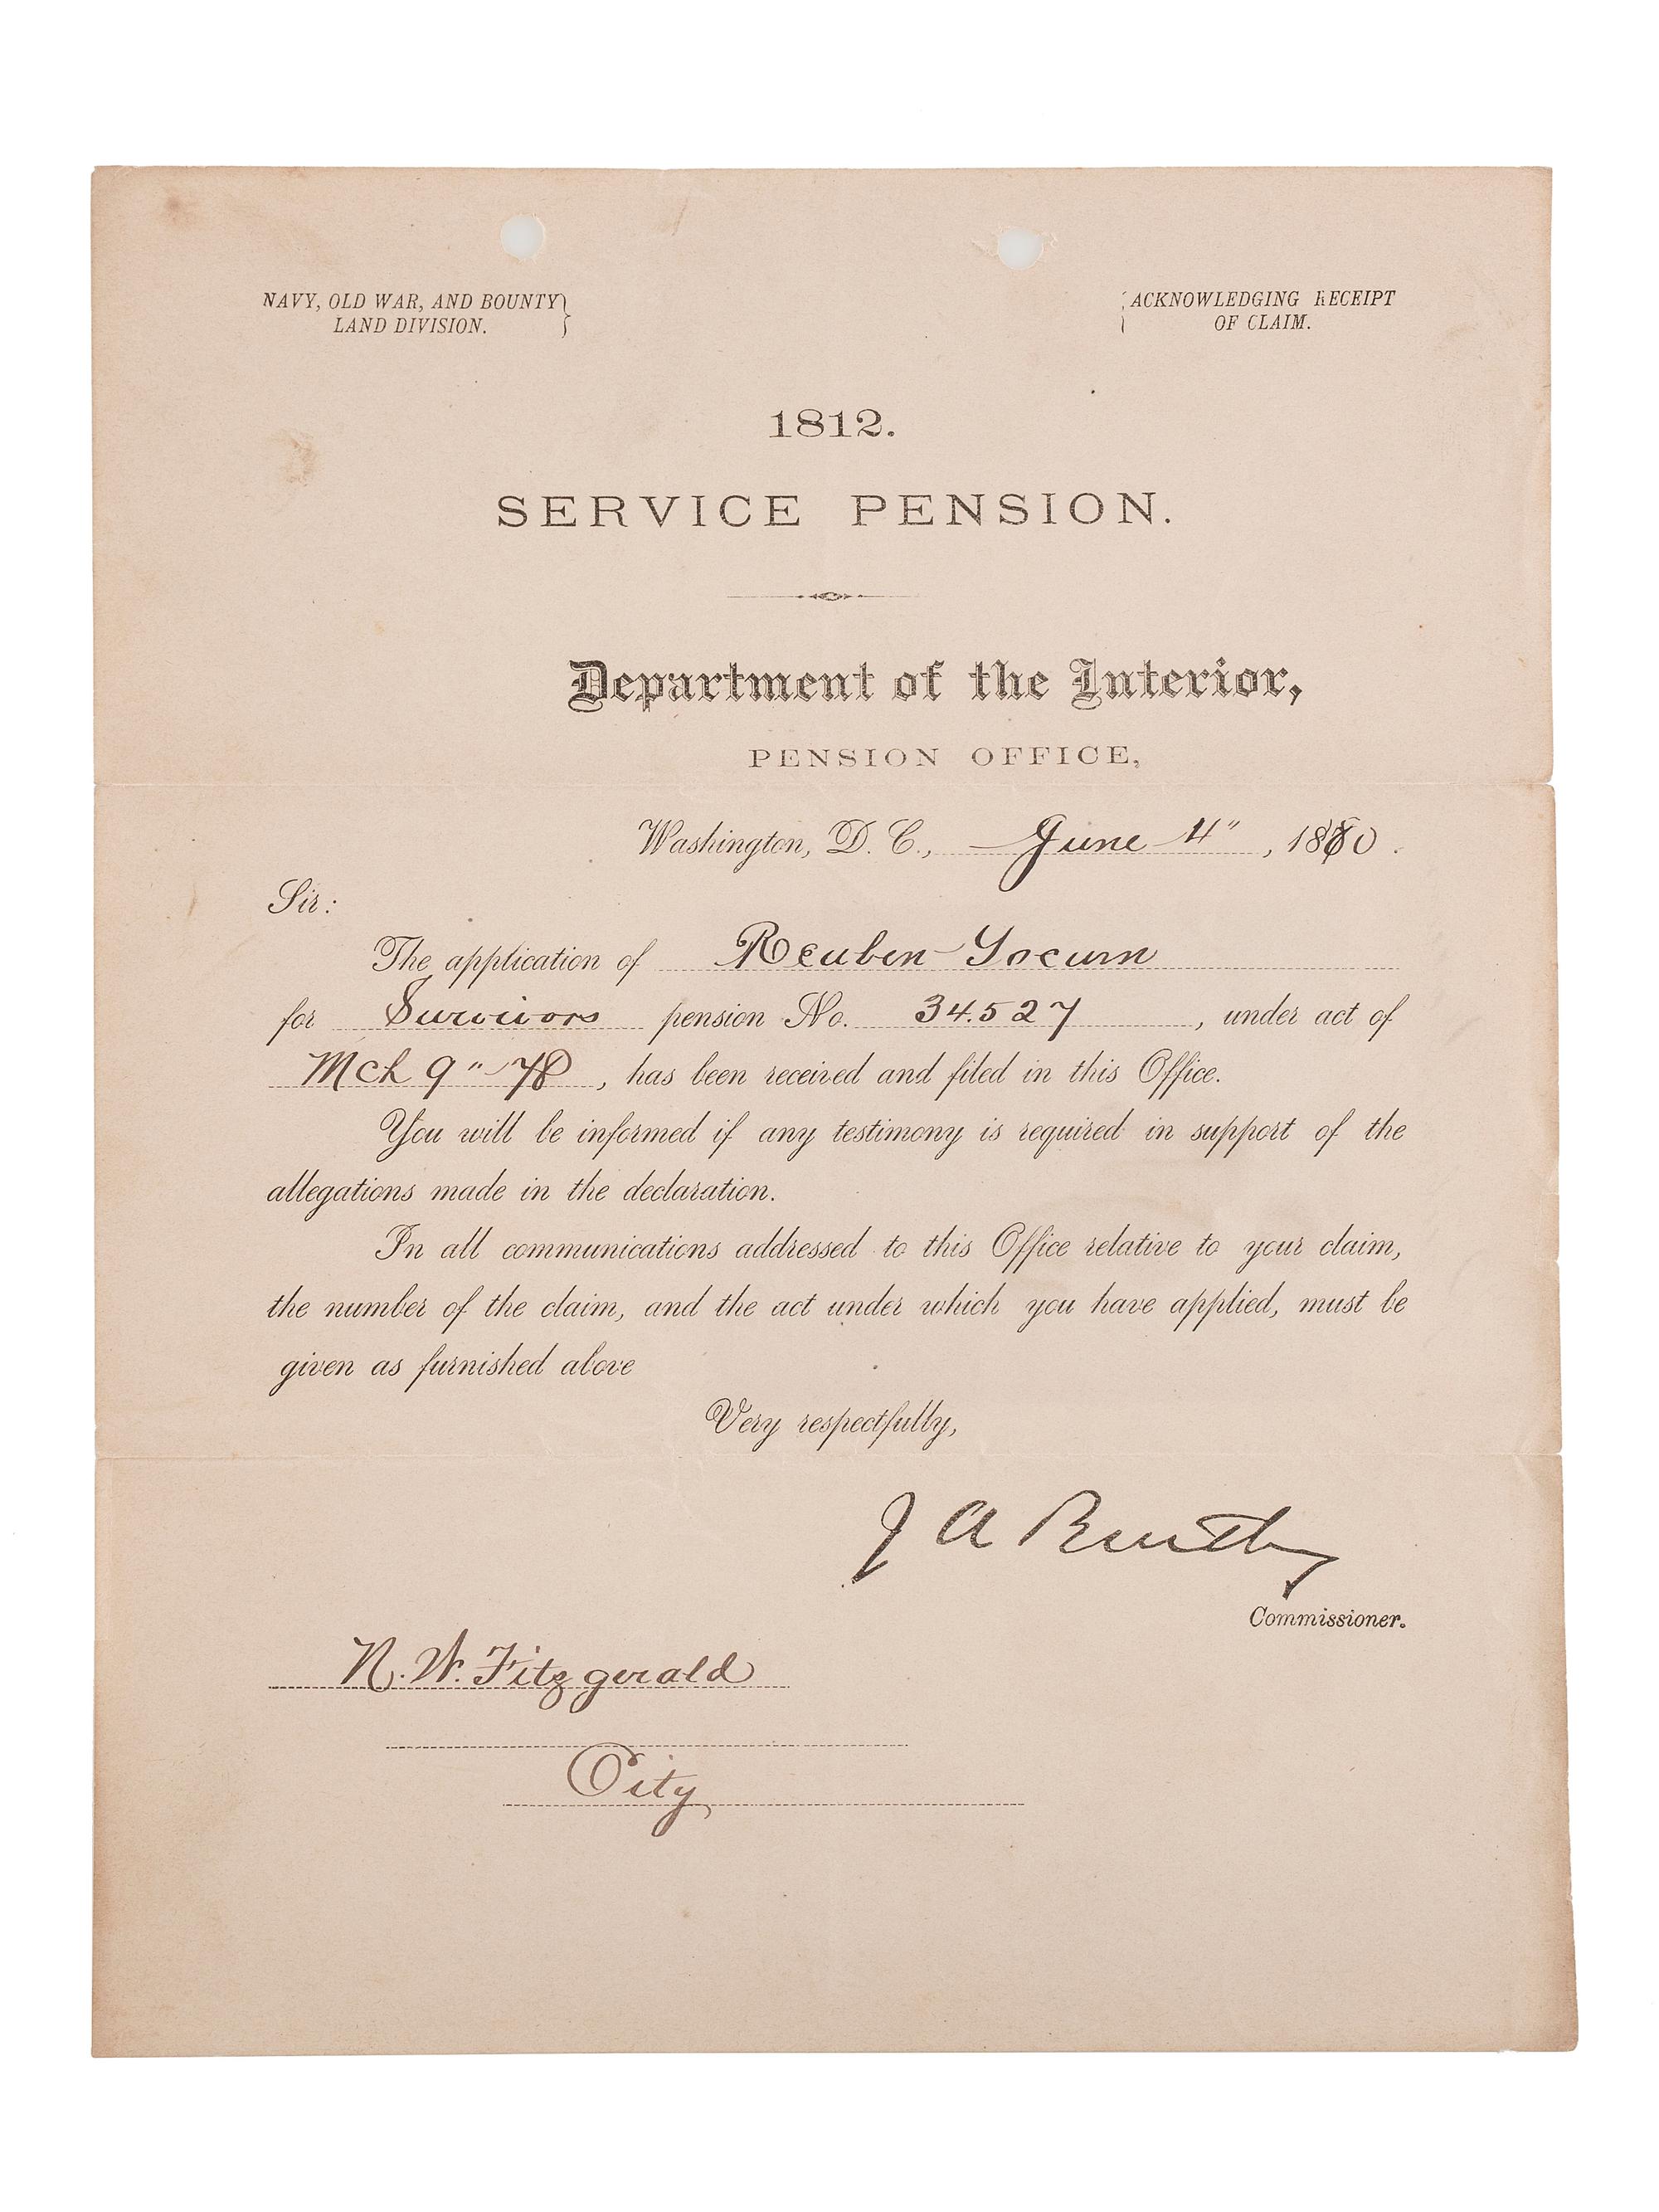 NAVY, OLD WAR, AND BOUNTY }
LAND DIVISION.
{ ACKNOWLEDGING RECEIPT
OF CLAIM.
1812.
SERVICE PENSION.
Department of the Interior,
PENSION OFFICE,
Washington, D. C., June 4", 1880.
Sir:
The application of Reuben Yocum
for Survivors pension No. 34.527, under act of
Mch 9" 78, has been received and filed in this Office.
You will be informed if any testimony is required in support of the
allegations made in the declaration.
In all communications addressed to this Office relative to your claim,
the number of the claim, and the act under which you have applied, must be
given as furnished above
Very respectfully,
J A Bentley
Commissioner.
N. W. Fitzgerald
City